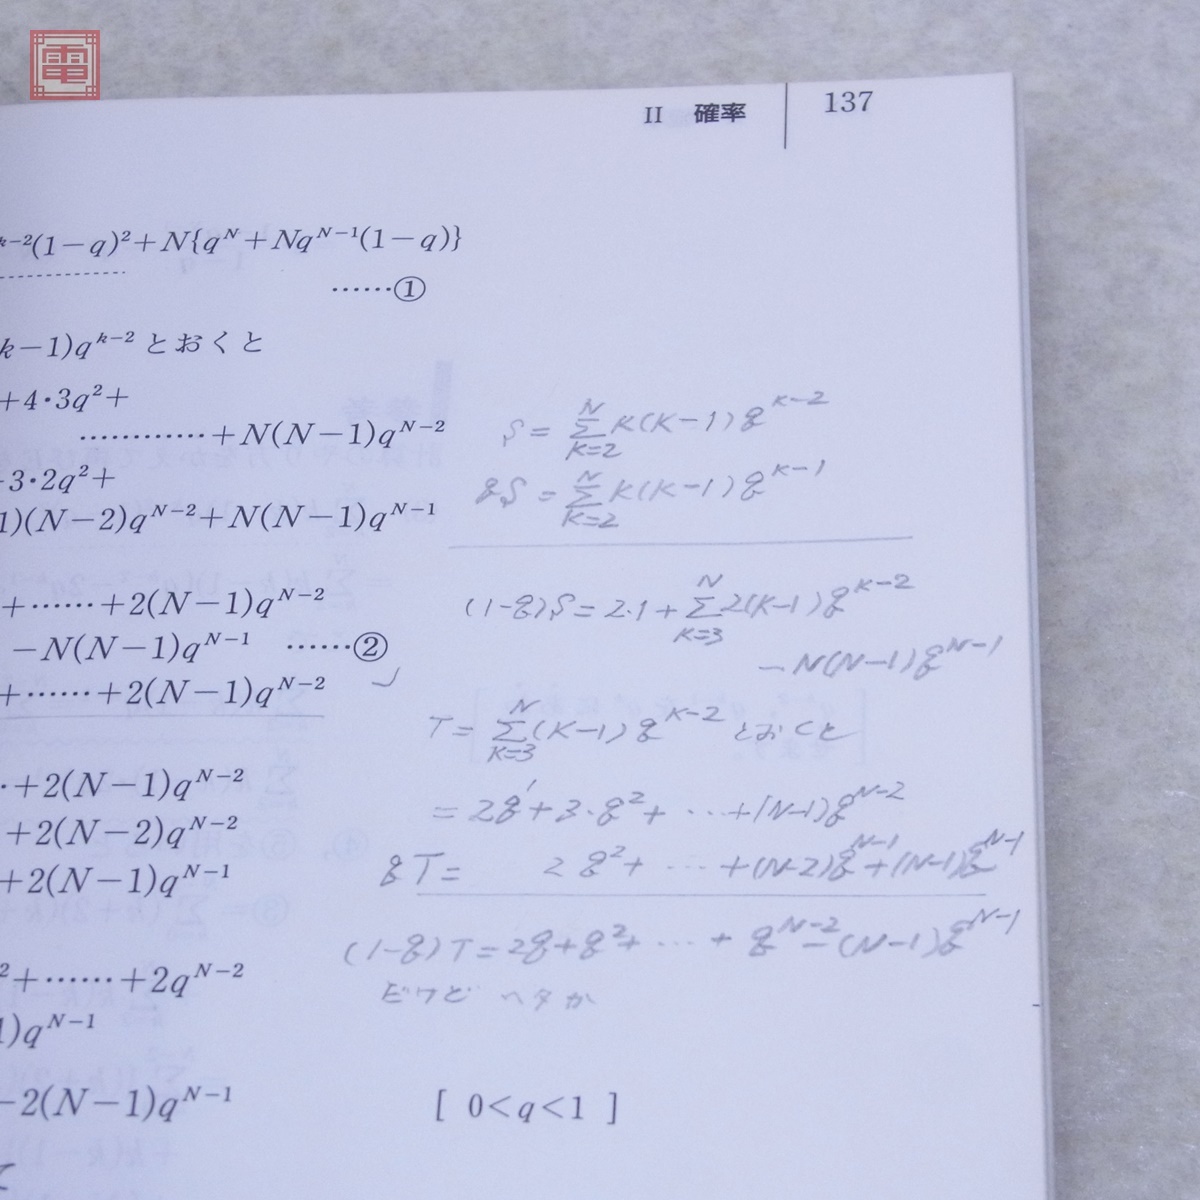 電
II 確率 137
k−2(1−q)²+N{q^N+Nq^{N−1}(1−q)}
……①
k−1)q^{k−2} とおくと
+4・3q²+
…………+N(N−1)q^{N−2}
3・2q²+
1)(N−2)q^{N−2}+N(N−1)q^{N−1}
+……+2(N−1)q^{N−2}
−N(N−1)q^{N−1} ……②
+……+2(N−1)q^{N−2}
+2(N−1)q^{N−2}
+2(N−2)q^{N−2}
+2(N−1)q^{N−1}
²+……+2q^{N−2}
1)q^{N−1}
−2(N−1)q^{N−1} [ 0<q<1 ]
て
S=Σ_{K=2}^{N} K(K−1)q^{K−2}
qS=Σ_{K=2}^{N} K(K−1)q^{K−1}
(1−q)S=2・1+Σ_{K=3}^{N} 2(K−1)q^{K−2}
−N(N−1)q^{N−1}
T=Σ_{K=3}^{N} (K−1)q^{K−2} とおくと
=2q'+3・q²+ …+(N−1)q^{N−2}
qT= 2q²+ …+(N−2)q^{N−1}+(N−1)q^{N−1}
(1−q)T=2q+q²+ …+ q^{N−2}−(N−1)q^{N−1}